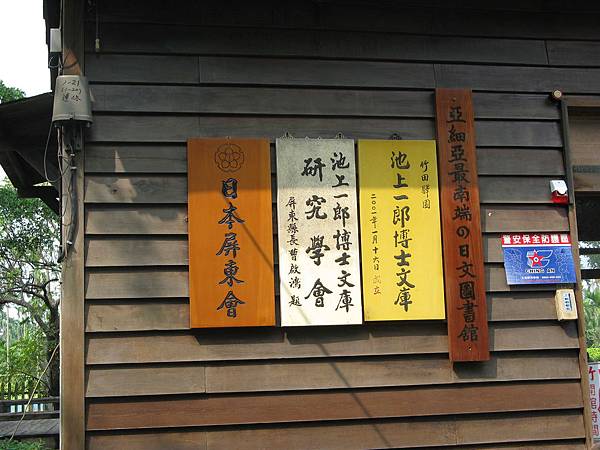 亞細亞最南端の日文圖書館
竹田驛園
池上一郎博士文庫
二〇〇一年一月十六日成立
池上一郎博士文庫
研究學會
屏東縣長曹啟鴻題
日本屏東會
安保全防護區
CHING AN
開館時間